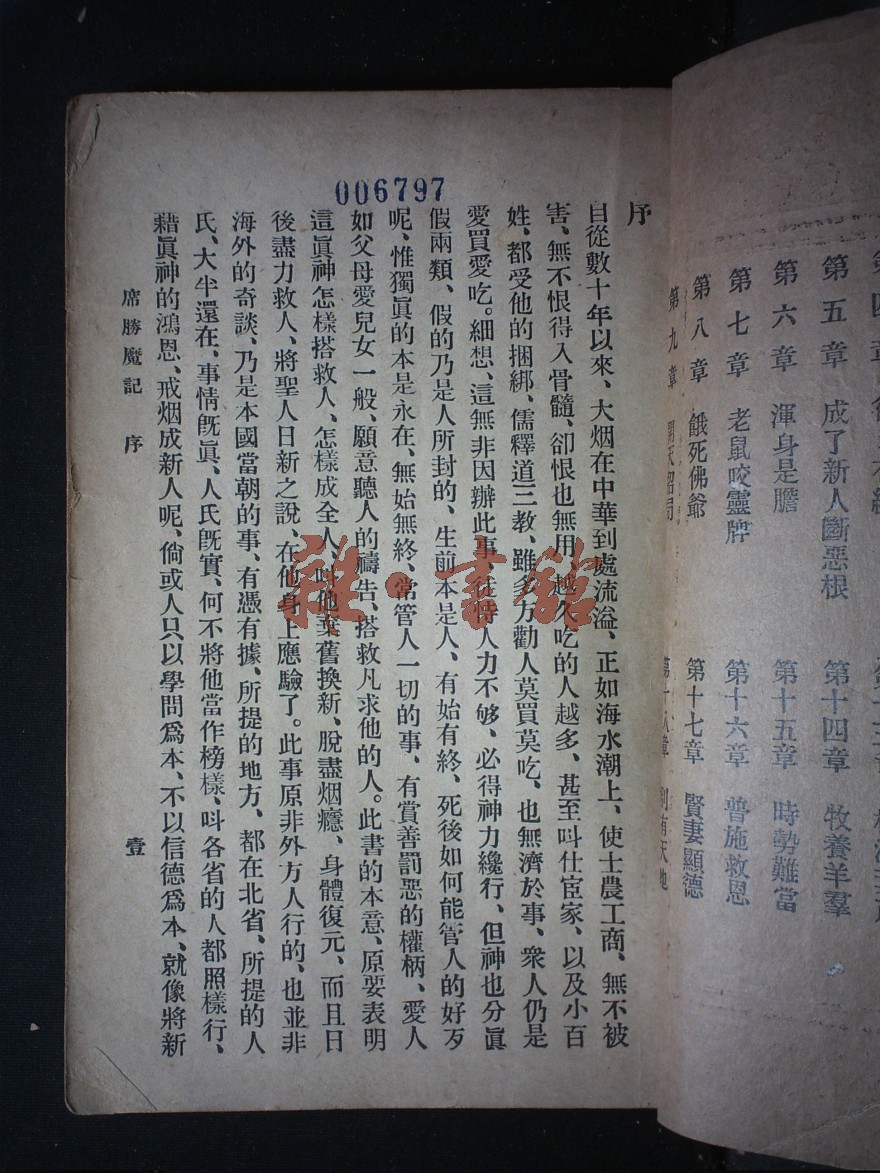 006797
序
自從數十年以來、大烟在中華到處流溢、正如海水潮上、使士農工商、無不被
害、無不恨得入骨髓、卻恨也無用、越久吃的人越多、甚至呌仕宦家、以及小百
姓、都受他的捆綁、儒釋道三教、雖多方勸人莫買莫吃、也無濟於事、衆人仍是
愛買愛吃。細想、這無非因辦此事、徒恃人力不够、必得神力纔行、但神也分眞
假兩類、假的乃是人所封的、生前本是人、有始有終、死後如何能管人的好歹
呢、惟獨眞的本是永在、無始無終、常管人一切的事、有賞善罰惡的權柄、愛人
如父母愛兒女一般、願意聽人的禱告、搭救凡求他的人。此書的本意、原要表明
這眞神怎樣搭救人、怎樣成全人、呌他棄舊換新、脫盡烟癮、身體復元、而且日
後盡力救人、將聖人日新之說、在他身上應驗了。此事原非外方人行的、也並非
海外的奇談、乃是本國當朝的事、有憑有據、所提的地方、都在北省、所提的人
氏、大半還在、事情旣眞、人氏旣實、何不將他當作榜樣、呌各省的人都照樣行、
藉眞神的鴻恩、戒烟成新人呢、倘或人只以學問爲本、不以信德爲本、就像將新
席勝魔記 序 壹
第五章 成了新人斷惡根
第六章 渾身是膽
第七章 老鼠咬靈牌
第八章 餓死佛爺
第九章
第十四章 牧養羊羣
第十五章 時勢難當
第十六章 普施救恩
第十七章 賢妻顯德
第十八章 別有天地
雜·書館